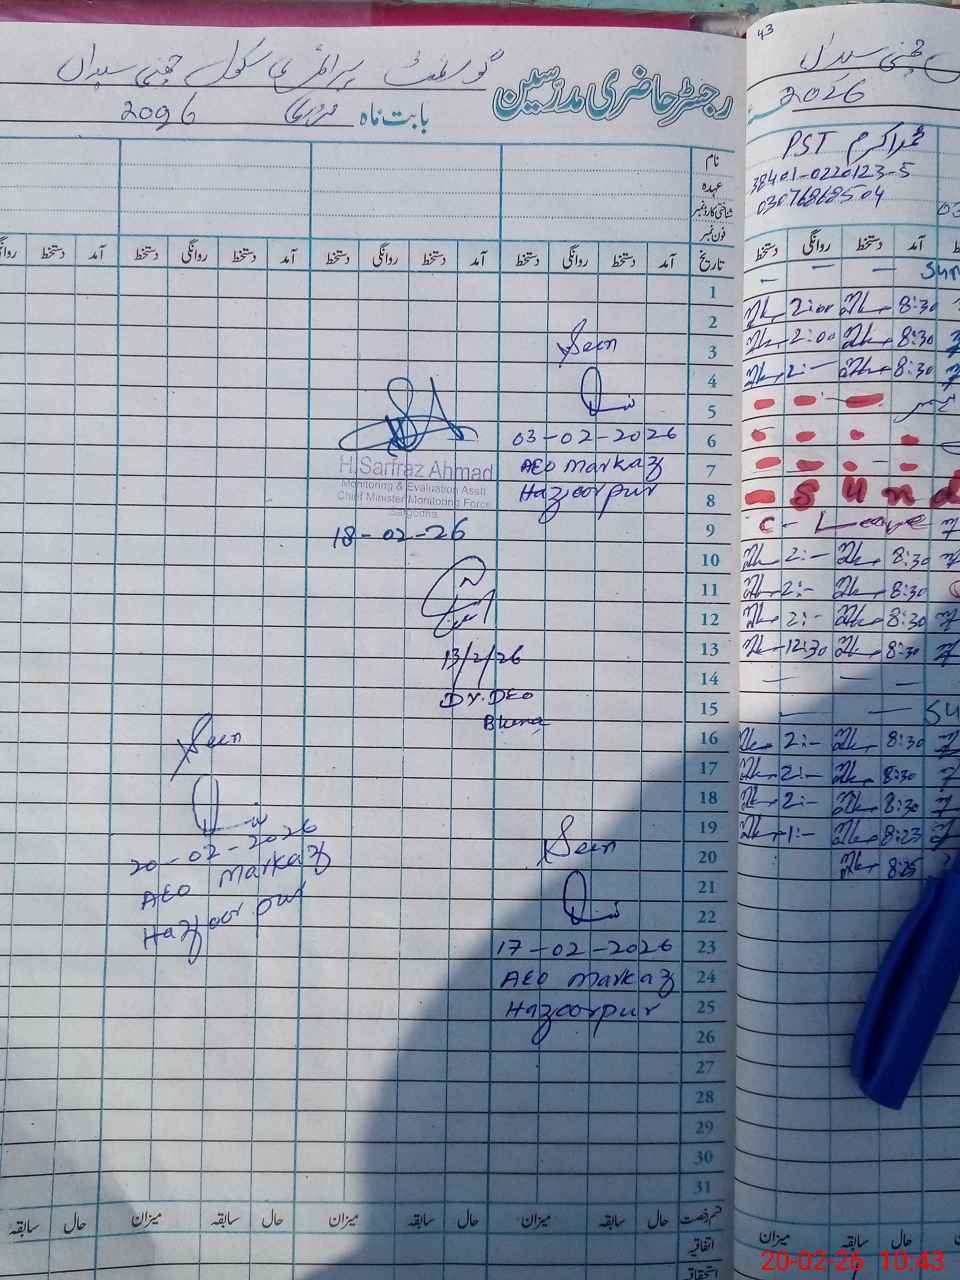 رجسٹر حاضری مدرسین
گورنمنٹ پرائمری سکول چھنی سیداں
بابت ماہ فروری 2026
نام
عہدہ
شناختی کارڈ نمبر
فون نمبر
تاریخ آمد دستخط روانگی دستخط آمد دستخط روانگی دستخط آمد دستخط روانگی دستخط آمد دستخط
1
2
3
4
5
6
7
8
9
10
11
12
13
14
15
16
17
18
19
20
21
22
23
24
25
26
27
28
29
30
31
Seen
03-02-2026
AEO Markaz
Hazoorpur
H.Sarfraz Ahmad
Monitoring & Evaluation Asstt
Chief Minister Monitoring Force
Sargodha
18-02-26
13/2/26
DY.DEO
Seen
20-02-2026
AEO Markaz
Hazoorpur
Seen
17-02-2026
AEO Markaz
Hazoorpur
قسم رخصت حال سابقہ میزان حال سابقہ میزان حال سابقہ میزان حال سابقہ
اتفاقیہ
استحقاقیہ
43
چھنی سیداں
2026
محمد اکرم PST
38401-0220123-5
03076868504
آمد دستخط روانگی دستخط
8:30 2:00
8:30 2:00
8:30 2:-
Sund
C - Leave
8:30 2:-
8:30 2:-
8:30 2:-
8:30 12:30
8:30 2:-
8:30 2:-
8:30 2:-
8:23 1:-
8:25
حال سابقہ میزان
20-02-26 10:43